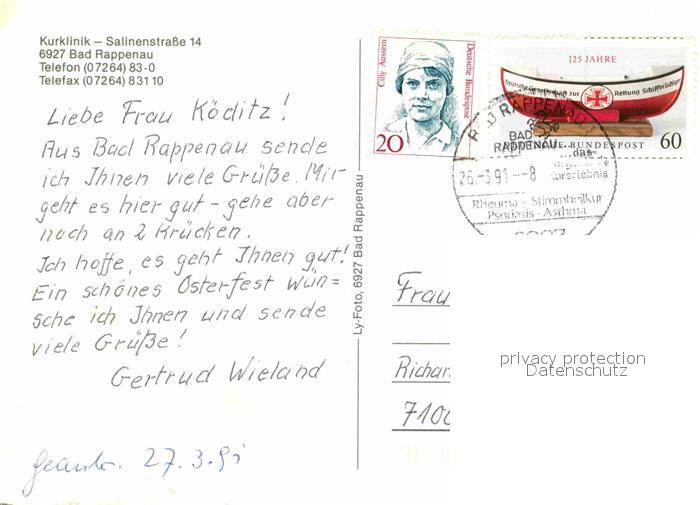 Kurklinik – Salinenstraße 14
6927 Bad Rappenau
Telefon (07264) 83-0
Telefax (07264) 83110
Liebe Frau Köditz!
Aus Bad Rappenau sende
ich Ihnen viele Grüße. Mir
geht es hier gut - gehe aber
noch an 2 Krücken.
Ich hoffe, es geht Ihnen gut!
Ein schönes Osterfest wün=
sche ich Ihnen und sende
viele Grüße!
Gertrud Wieland
geantw. 27.3.91
Ly-Foto, 6927 Bad Rappenau
Cilly Aussem
Deutsche Bundespost
20
125 JAHRE
Deutsche Gesellschaft zur Rettung Schiffbrüchiger
BUNDESPOST
60
BAD RAPPENAU
BAD
RAPPENAU
...das
26.-3.91.--8
kurerlebnis
Rheuma · Stimmheilkur
Psoriasis · Asthma
6927
Frau
Richar
7100
privacy protection
Datenschutz